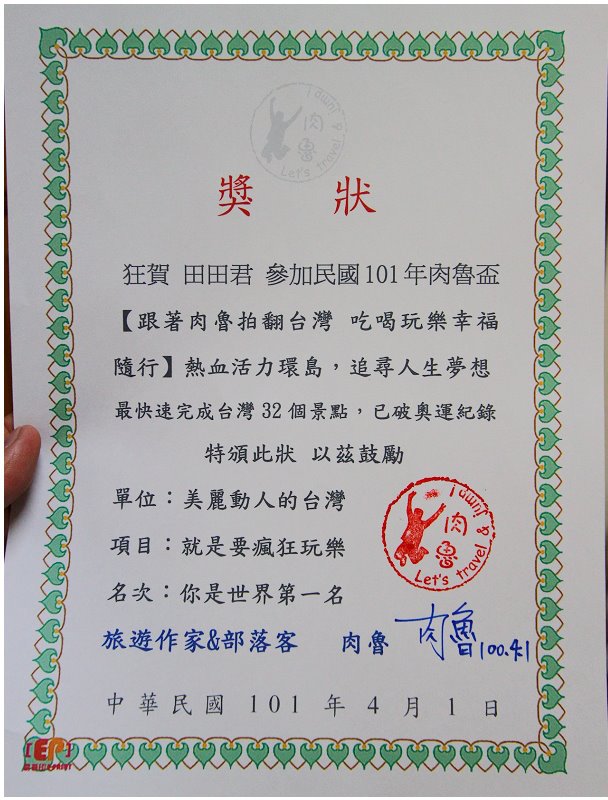 Let's travel & Jump!
肉魯
獎 狀
狂賀 田田君 參加民國101年肉魯盃
【跟著肉魯拍翻台灣 吃喝玩樂幸福
隨行】熱血活力環島，追尋人生夢想
最快速完成台灣32個景點，已破奧運紀錄
特頒此狀 以茲鼓勵
單位：美麗動人的台灣
項目：就是要瘋狂玩樂
名次：你是世界第一名
Let's travel & Jump!
肉魯
旅遊作家&部落客 肉魯 肉魯 100.4.1
中華民國 101 年 4 月 1 日